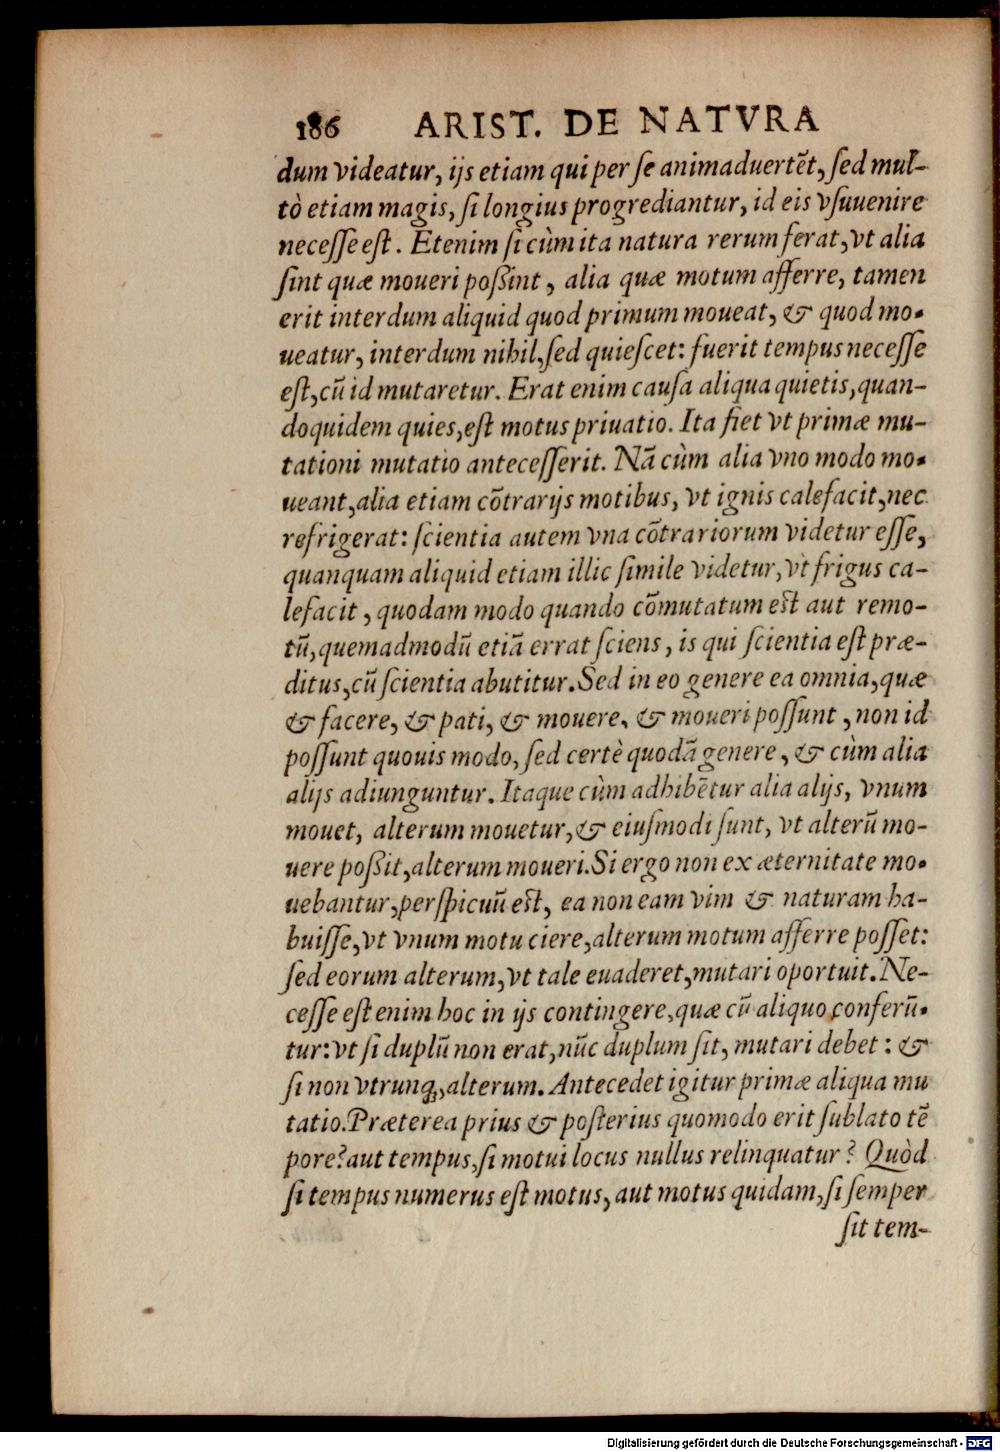 186 ARIST. DE NATVRA
dum videatur, ijs etiam qui per se animaduertēt, sed mul-
tò etiam magis, si longius progrediantur, id eis vsuuenire
necesse est. Etenim si cùm ita natura rerum ferat, vt alia
sint quæ moueri poßint, alia quæ motum afferre, tamen
erit interdum aliquid quod primum moueat, & quod mo-
ueatur, interdum nihil, sed quiescet: fuerit tempus necesse
est, cū id mutaretur. Erat enim causa aliqua quietis, quan-
doquidem quies, est motus priuatio. Ita fiet vt primæ mu-
tationi mutatio antecesserit. Nā cùm alia vno modo mo-
ueant, alia etiam cōtrarijs motibus, vt ignis calefacit, nec
refrigerat: scientia autem vna cōtrariorum videtur esse,
quanquam aliquid etiam illic simile videtur, vt frigus ca-
lefacit, quodam modo quando cōmutatum est aut remo-
tū, quemadmodū etiā errat sciens, is qui scientia est præ-
ditus, cū scientia abutitur. Sed in eo genere ea omnia, quæ
& facere, & pati, & mouere, & moueri possunt, non id
possunt quouis modo, sed certè quodā genere, & cùm alia
alijs adiunguntur. Itaque cùm adhibētur alia alijs, vnum
mouet, alterum mouetur, & eiusmodi sunt, vt alterū mo-
uere poßit, alterum moueri. Si ergo non ex æternitate mo-
uebantur, perspicuū est, ea non eam vim & naturam ha-
buisse, vt vnum motu ciere, alterum motum afferre posset:
sed eorum alterum, vt tale euaderet, mutari oportuit. Ne-
cesse est enim hoc in ijs contingere, quæ cū aliquo conferū-
tur: vt si duplū non erat, nūc duplum sit, mutari debet: &
si non vtrunq;, alterum. Antecedet igitur primæ aliqua mu
tatio. Præterea prius & posterius quomodo erit sublato tē
pore? aut tempus, si motui locus nullus relinquatur? Quòd
si tempus numerus est motus, aut motus quidam, si semper
sit tem-
Digitalisierung gefördert durch die Deutsche Forschungsgemeinschaft - DFG